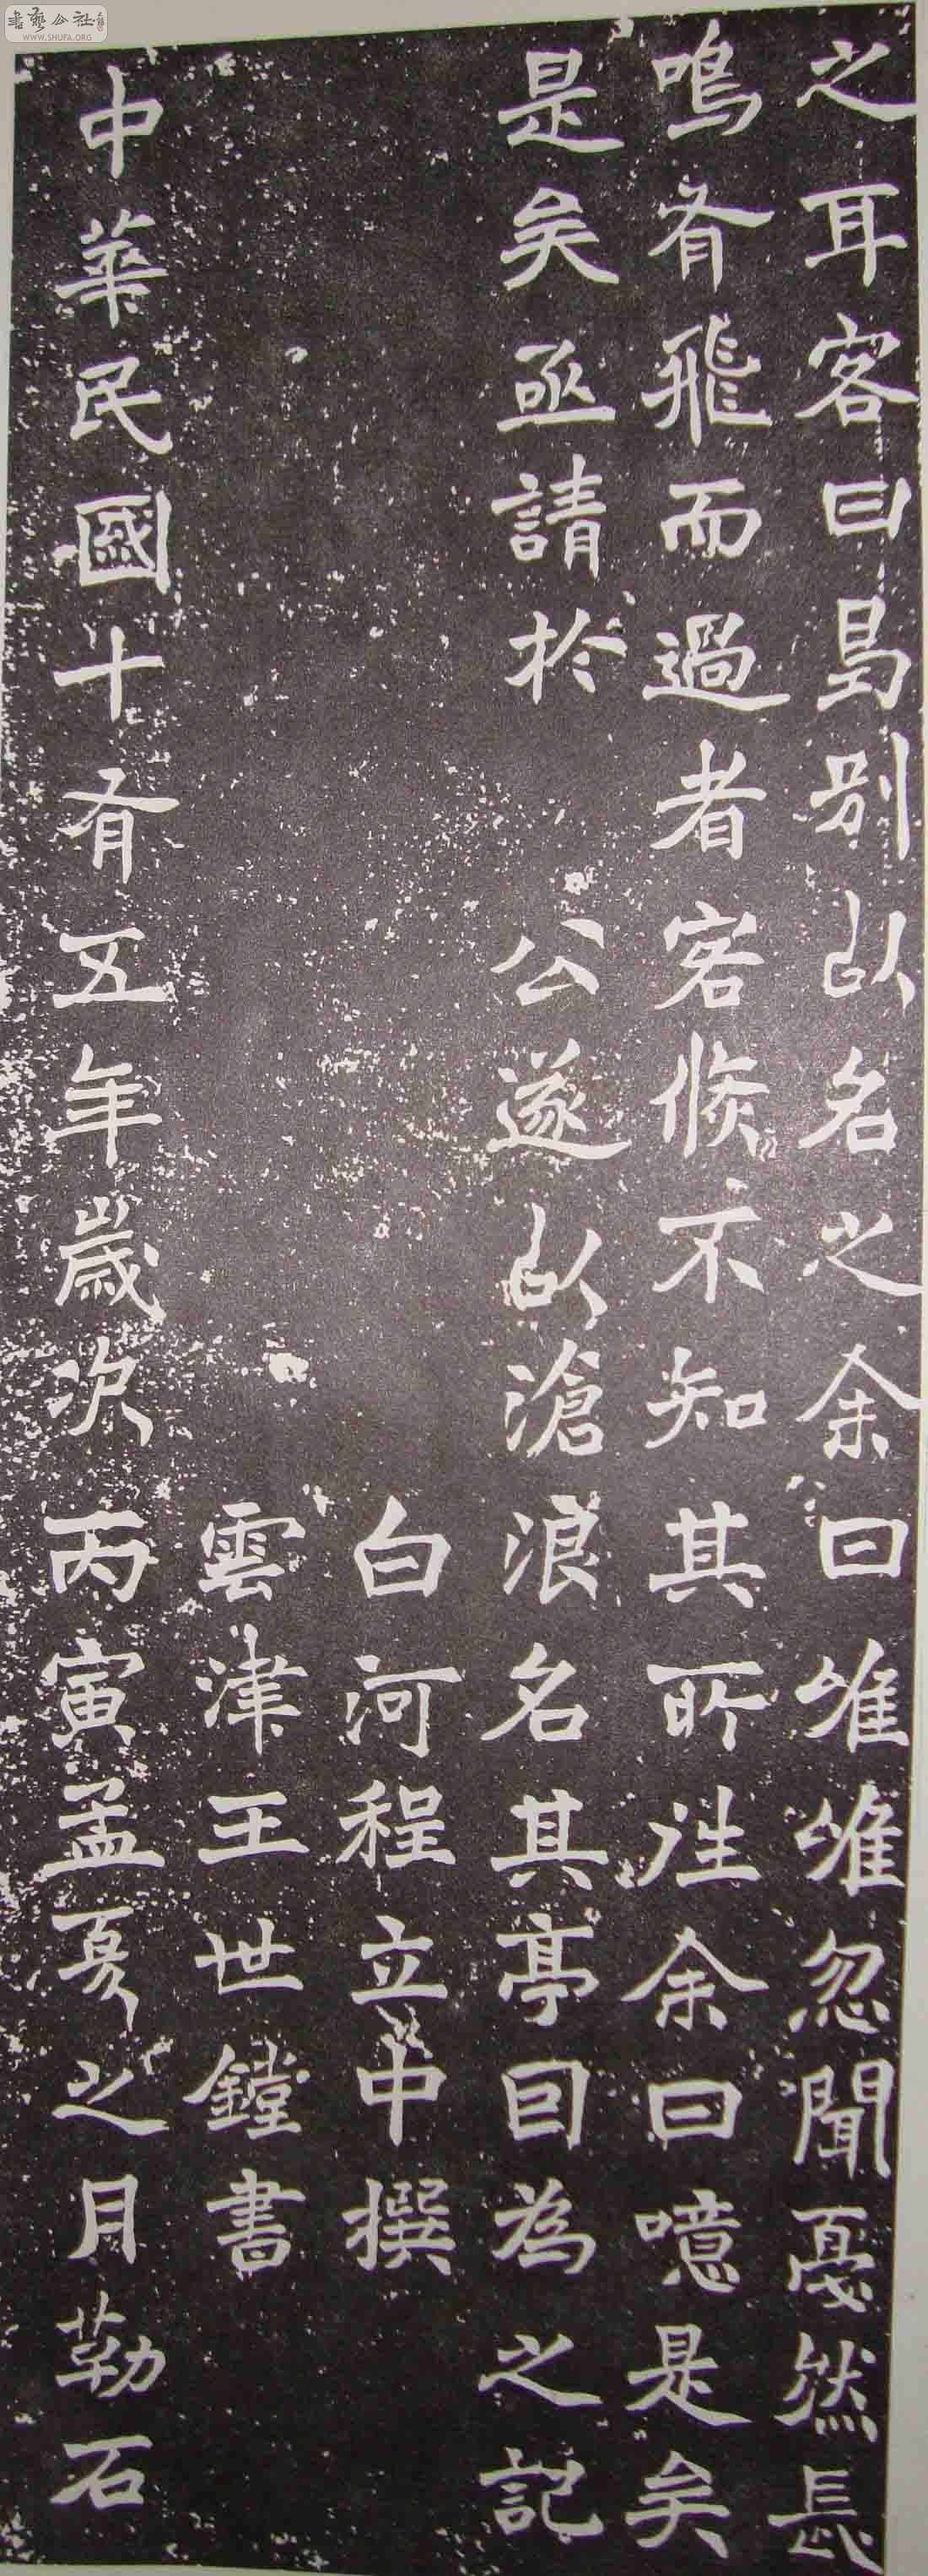 之耳客曰曷别以名之余曰唯唯忽聞戞然長
鳴有飛而過者客倐不知其所往余曰噫是矣
是矣亟請於公遂以滄浪名其亭因為之記
白河程立中撰
雲津王世鏜書
中華民國十有五年歲次丙寅孟夏之月勒石
書藝公社
WWW.SHUFA.ORG